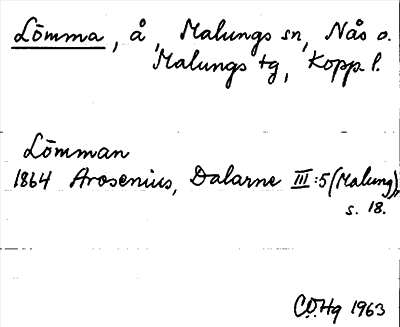 Lömma, å, Malungs sn, Nås o.
Malungs tg, Kopp. l.
Lömman
1864 Arosenius, Dalarne III:5 (Malung),
s. 18.
C.O.Hg 1963